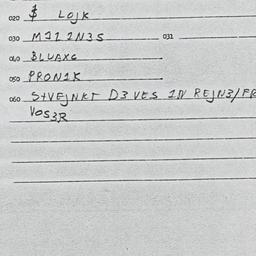 020 $ LOJK
030 MJ1 1N3S 031
040 BLUAXG
050 PRON1K
060 S+VEJNKT D3 VES IN REJN3/FR
VOS3R